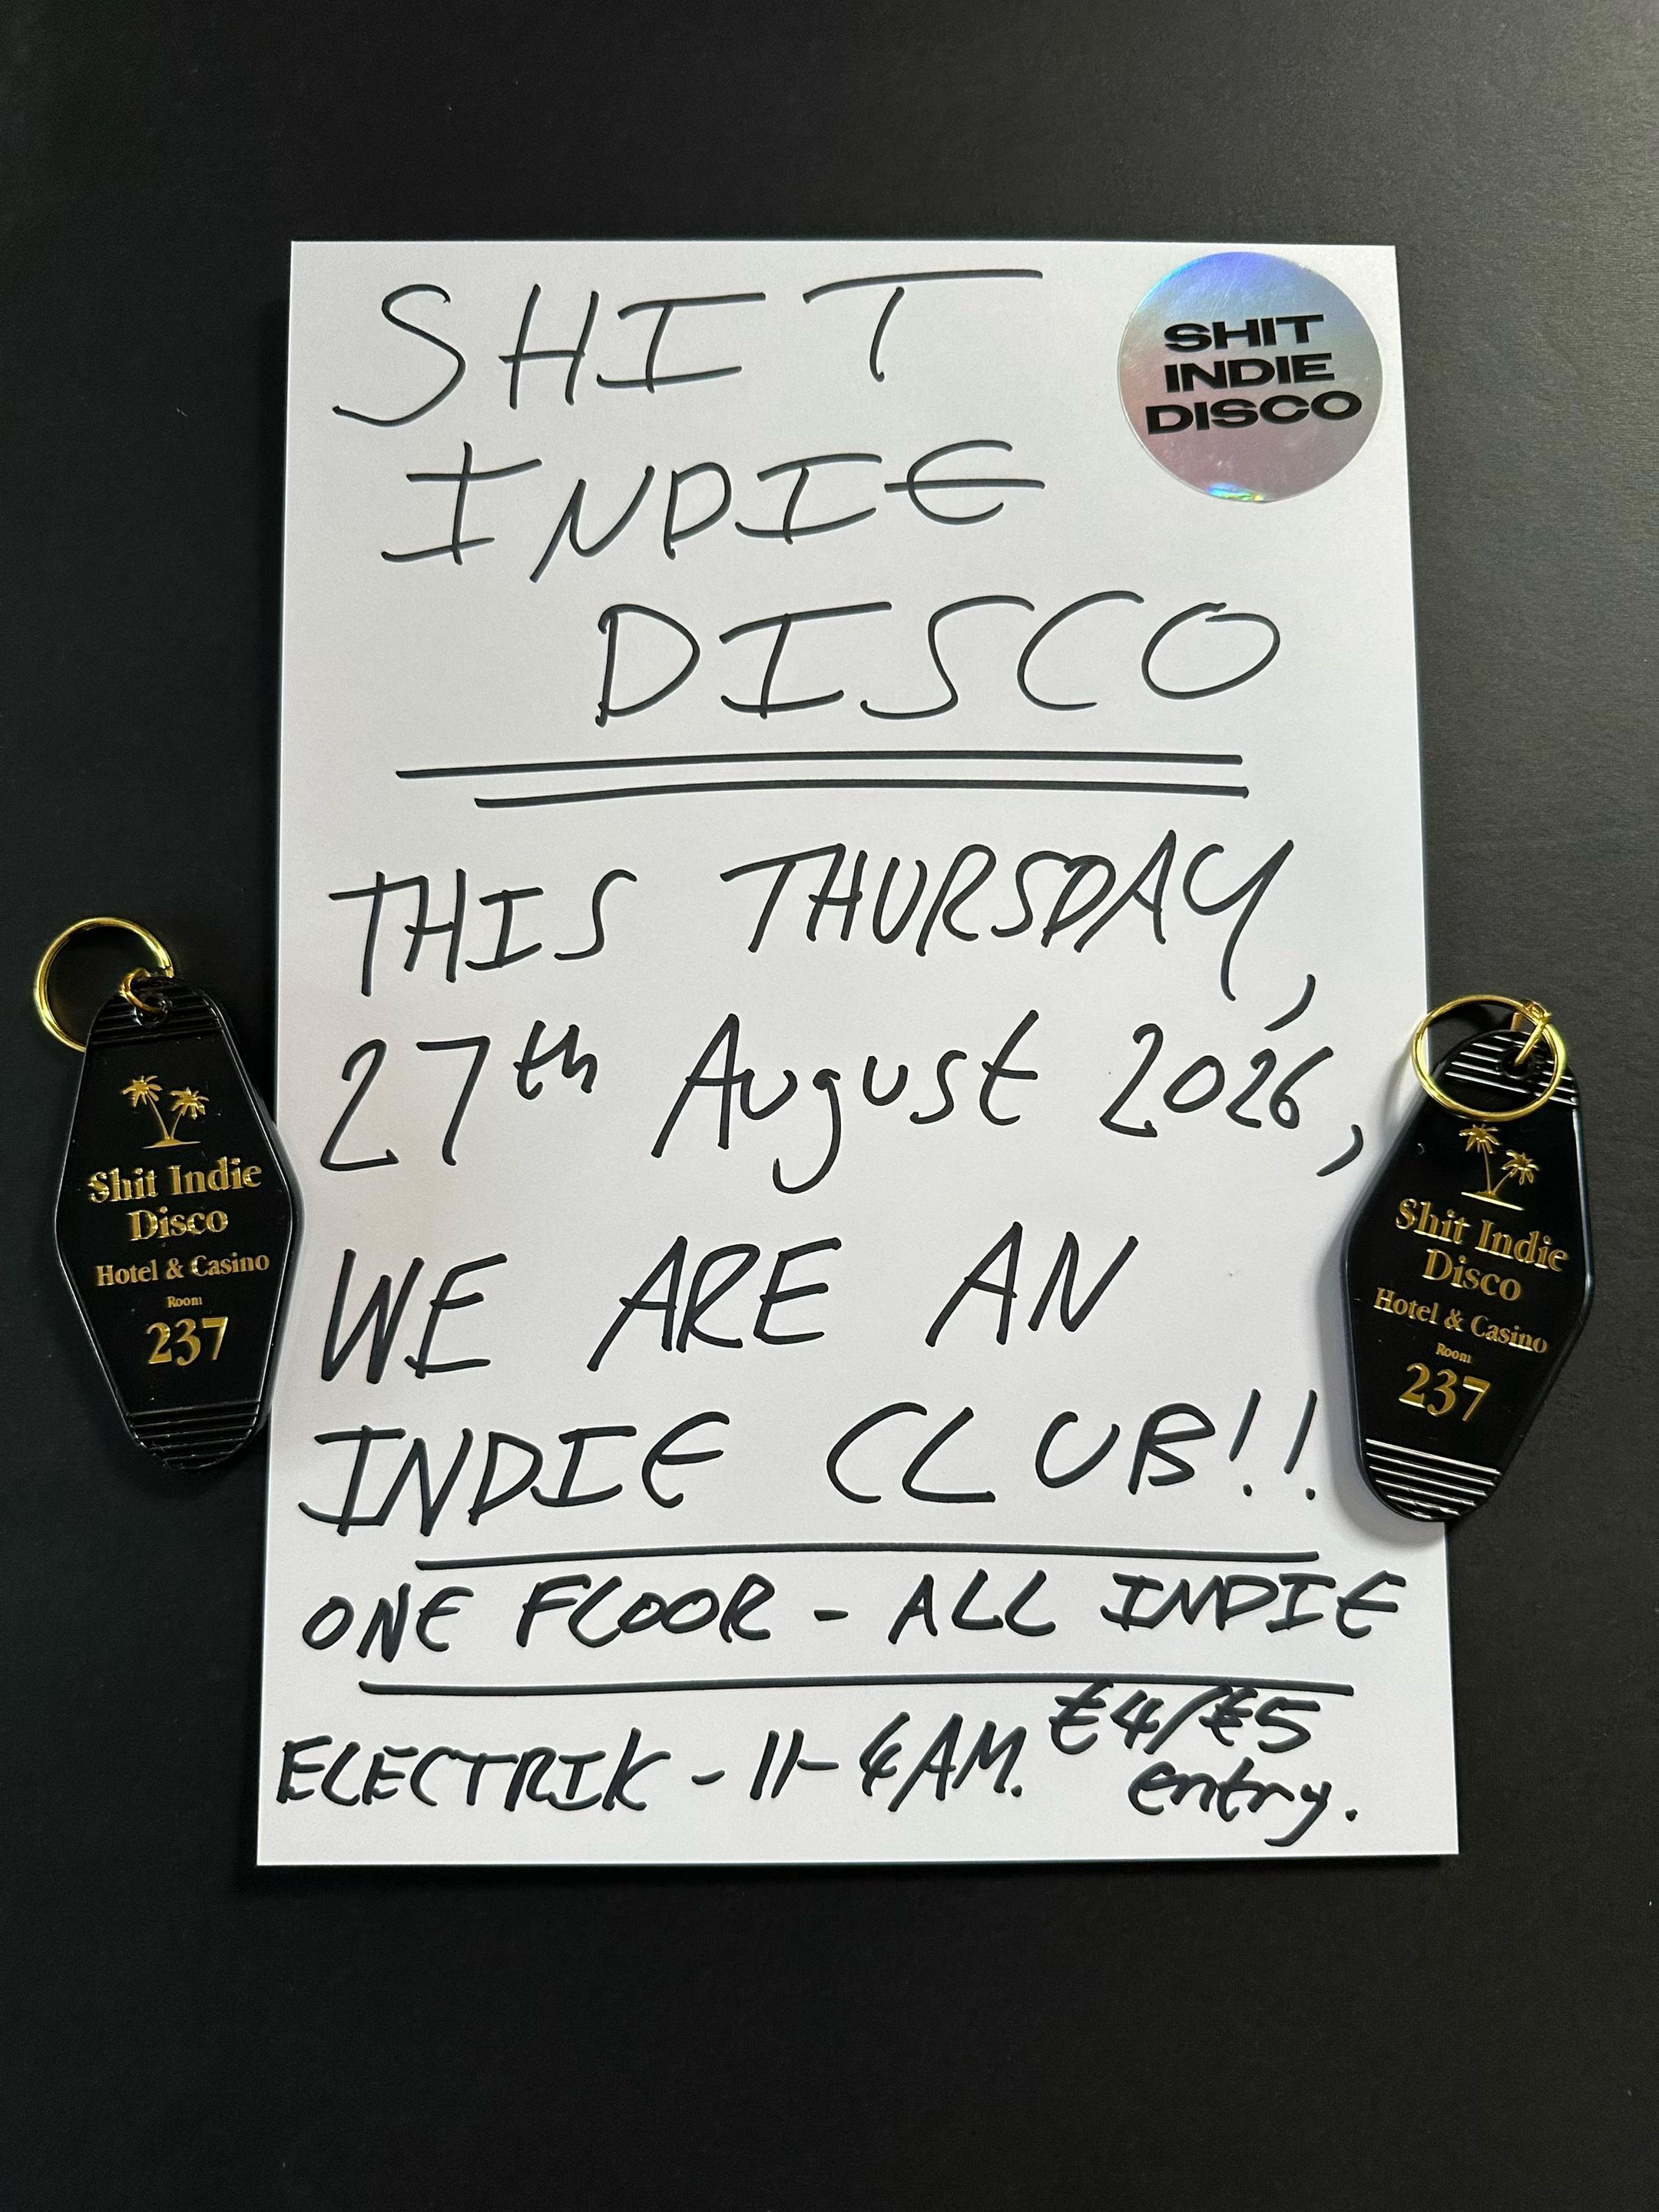 SHIT
INDIE
DISCO
SHIT
INDIE
DISCO
THIS THURSDAY,
27th August 2026,
WE ARE AN
INDIE CLUB!!
ONE FLOOR - ALL INDIE
ELECTRIK - 11-4AM. £4/£5
entry.
Shit Indie
Disco
Hotel & Casino
Room
237
Shit Indie
Disco
Hotel & Casino
Room
237